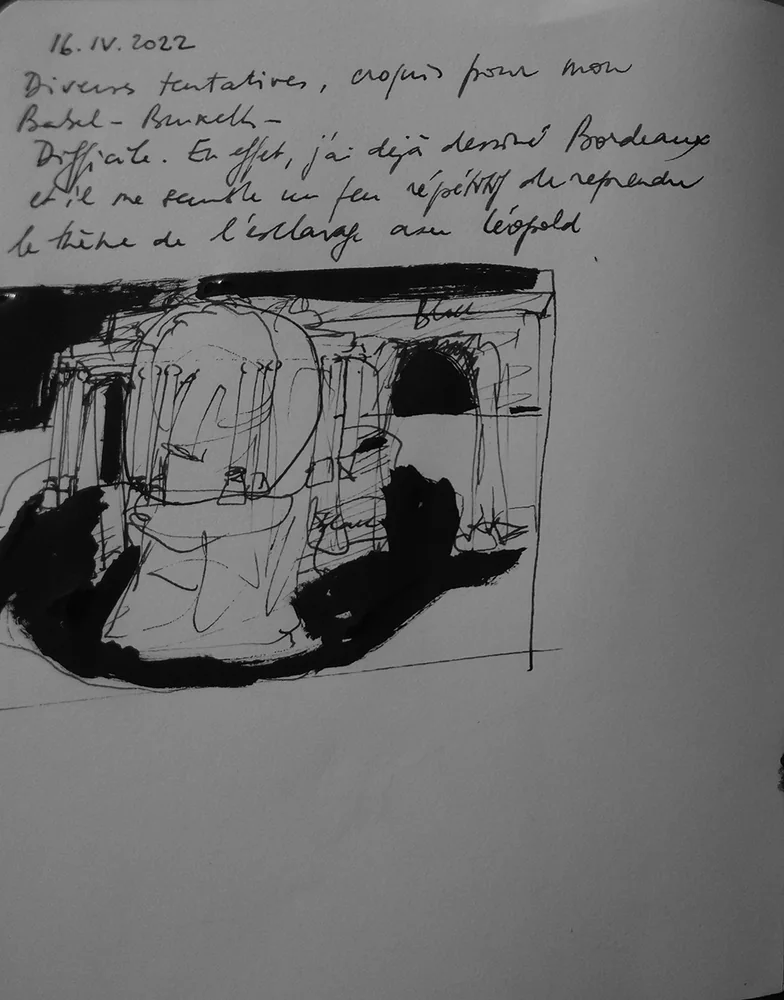 16.IV.2022
Diverses tentatives, croquis pour mon
Babel - Bruxelles -
Difficile. En effet, j'ai déjà dessiné Bordeaux
et il me semble un peu répétitif de reprendre
le thème de l'esclavage avec Léopold
blanc
blanc